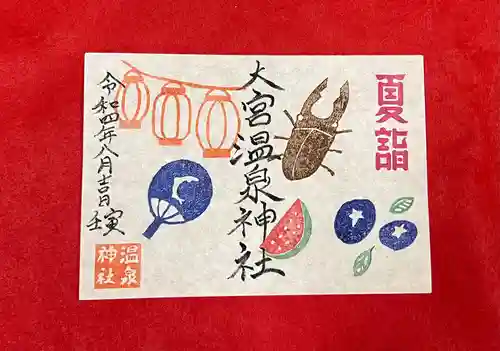 夏詣
大宮温泉神社
令和四年八月吉日
壬寅
温泉
神社